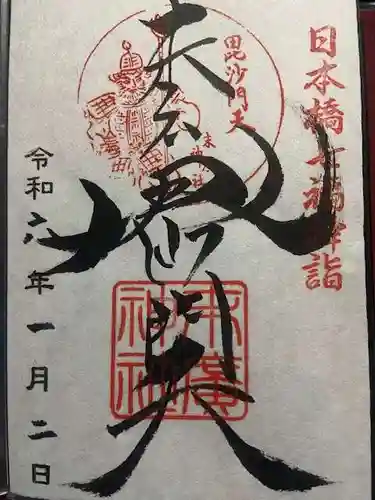 日本橋七福神詣
毘沙門天
毘沙門天
末廣神社
令和六年一月二日